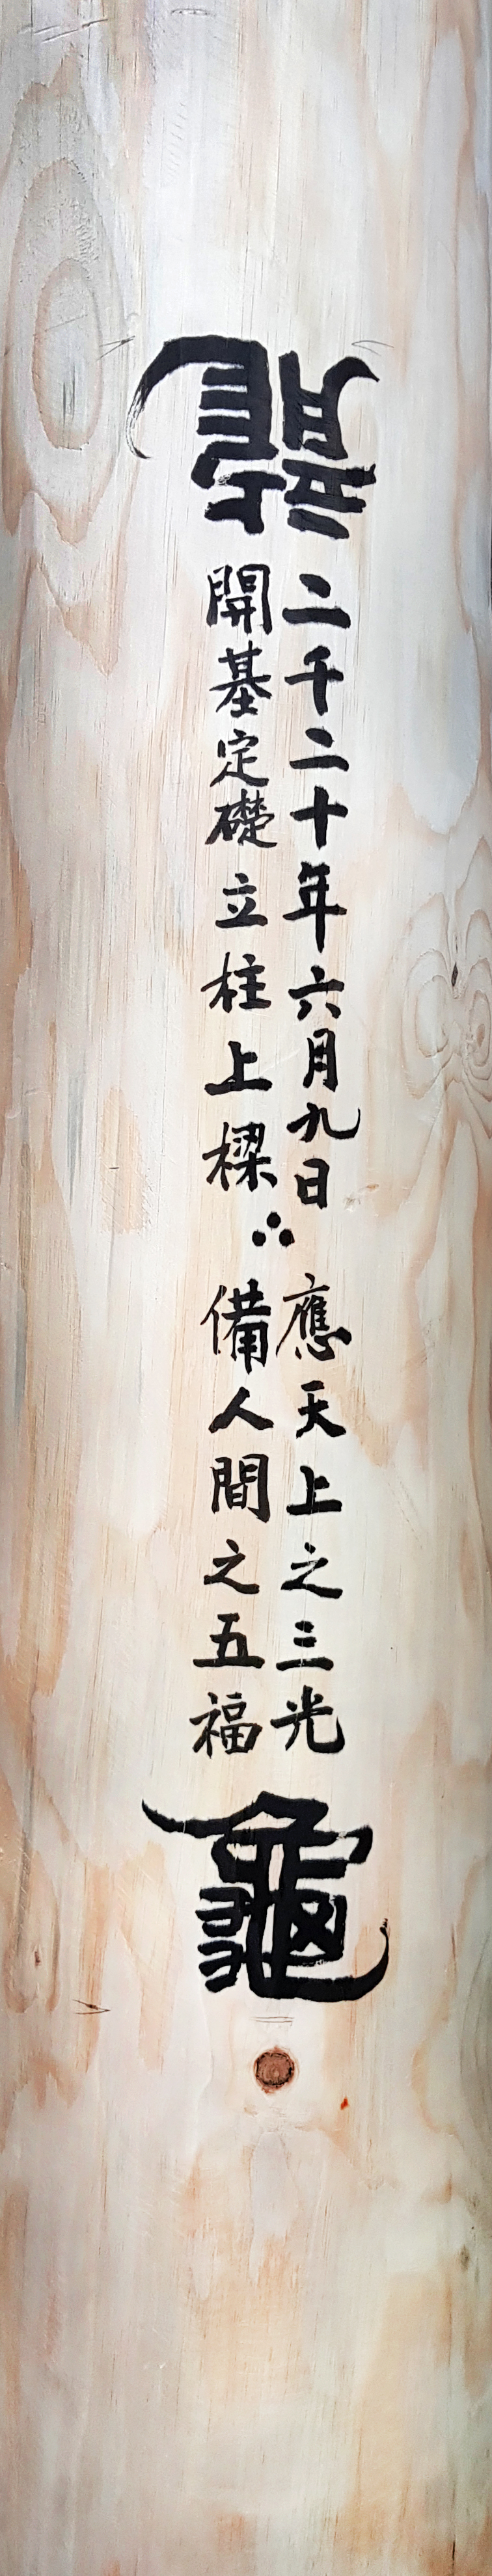 龍
二千二十年六月九日
開基定礎立柱上樑
應天上之三光
備人間之五福
龜